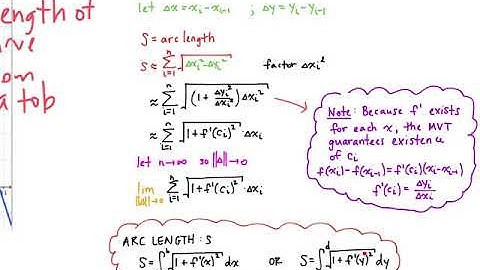 length of
on
a to b
let Δx = xᵢ - xᵢ₋₁ ; Δy = yᵢ - yᵢ₋₁
S = arc length
S ≈ ∑ᵢ₌₁ⁿ √(Δxᵢ² - Δyᵢ²) factor Δxᵢ²
≈ ∑ᵢ₌₁ⁿ √((1 + Δyᵢ²/Δxᵢ²) Δxᵢ²)
≈ ∑ᵢ₌₁ⁿ √(1 + f'(cᵢ)²) · Δxᵢ
let n→∞ so ‖Δ‖→0
lim ‖Δ‖→0 ∑ᵢ₌₁ⁿ √(1 + f'(cᵢ)²) · Δxᵢ
Note: Because f' exists
for each x, the MVT
guarantees existen
of cᵢ
f(xᵢ) - f(xᵢ₋₁) = f'(cᵢ)(xᵢ - xᵢ₋₁)
f'(cᵢ) = Δyᵢ/Δxᵢ
ARC LENGTH: S
S = ∫ᵇ √(1 + f'(x)²) dx OR S = ∫ᵈ √(1 + f'(y)²) dy